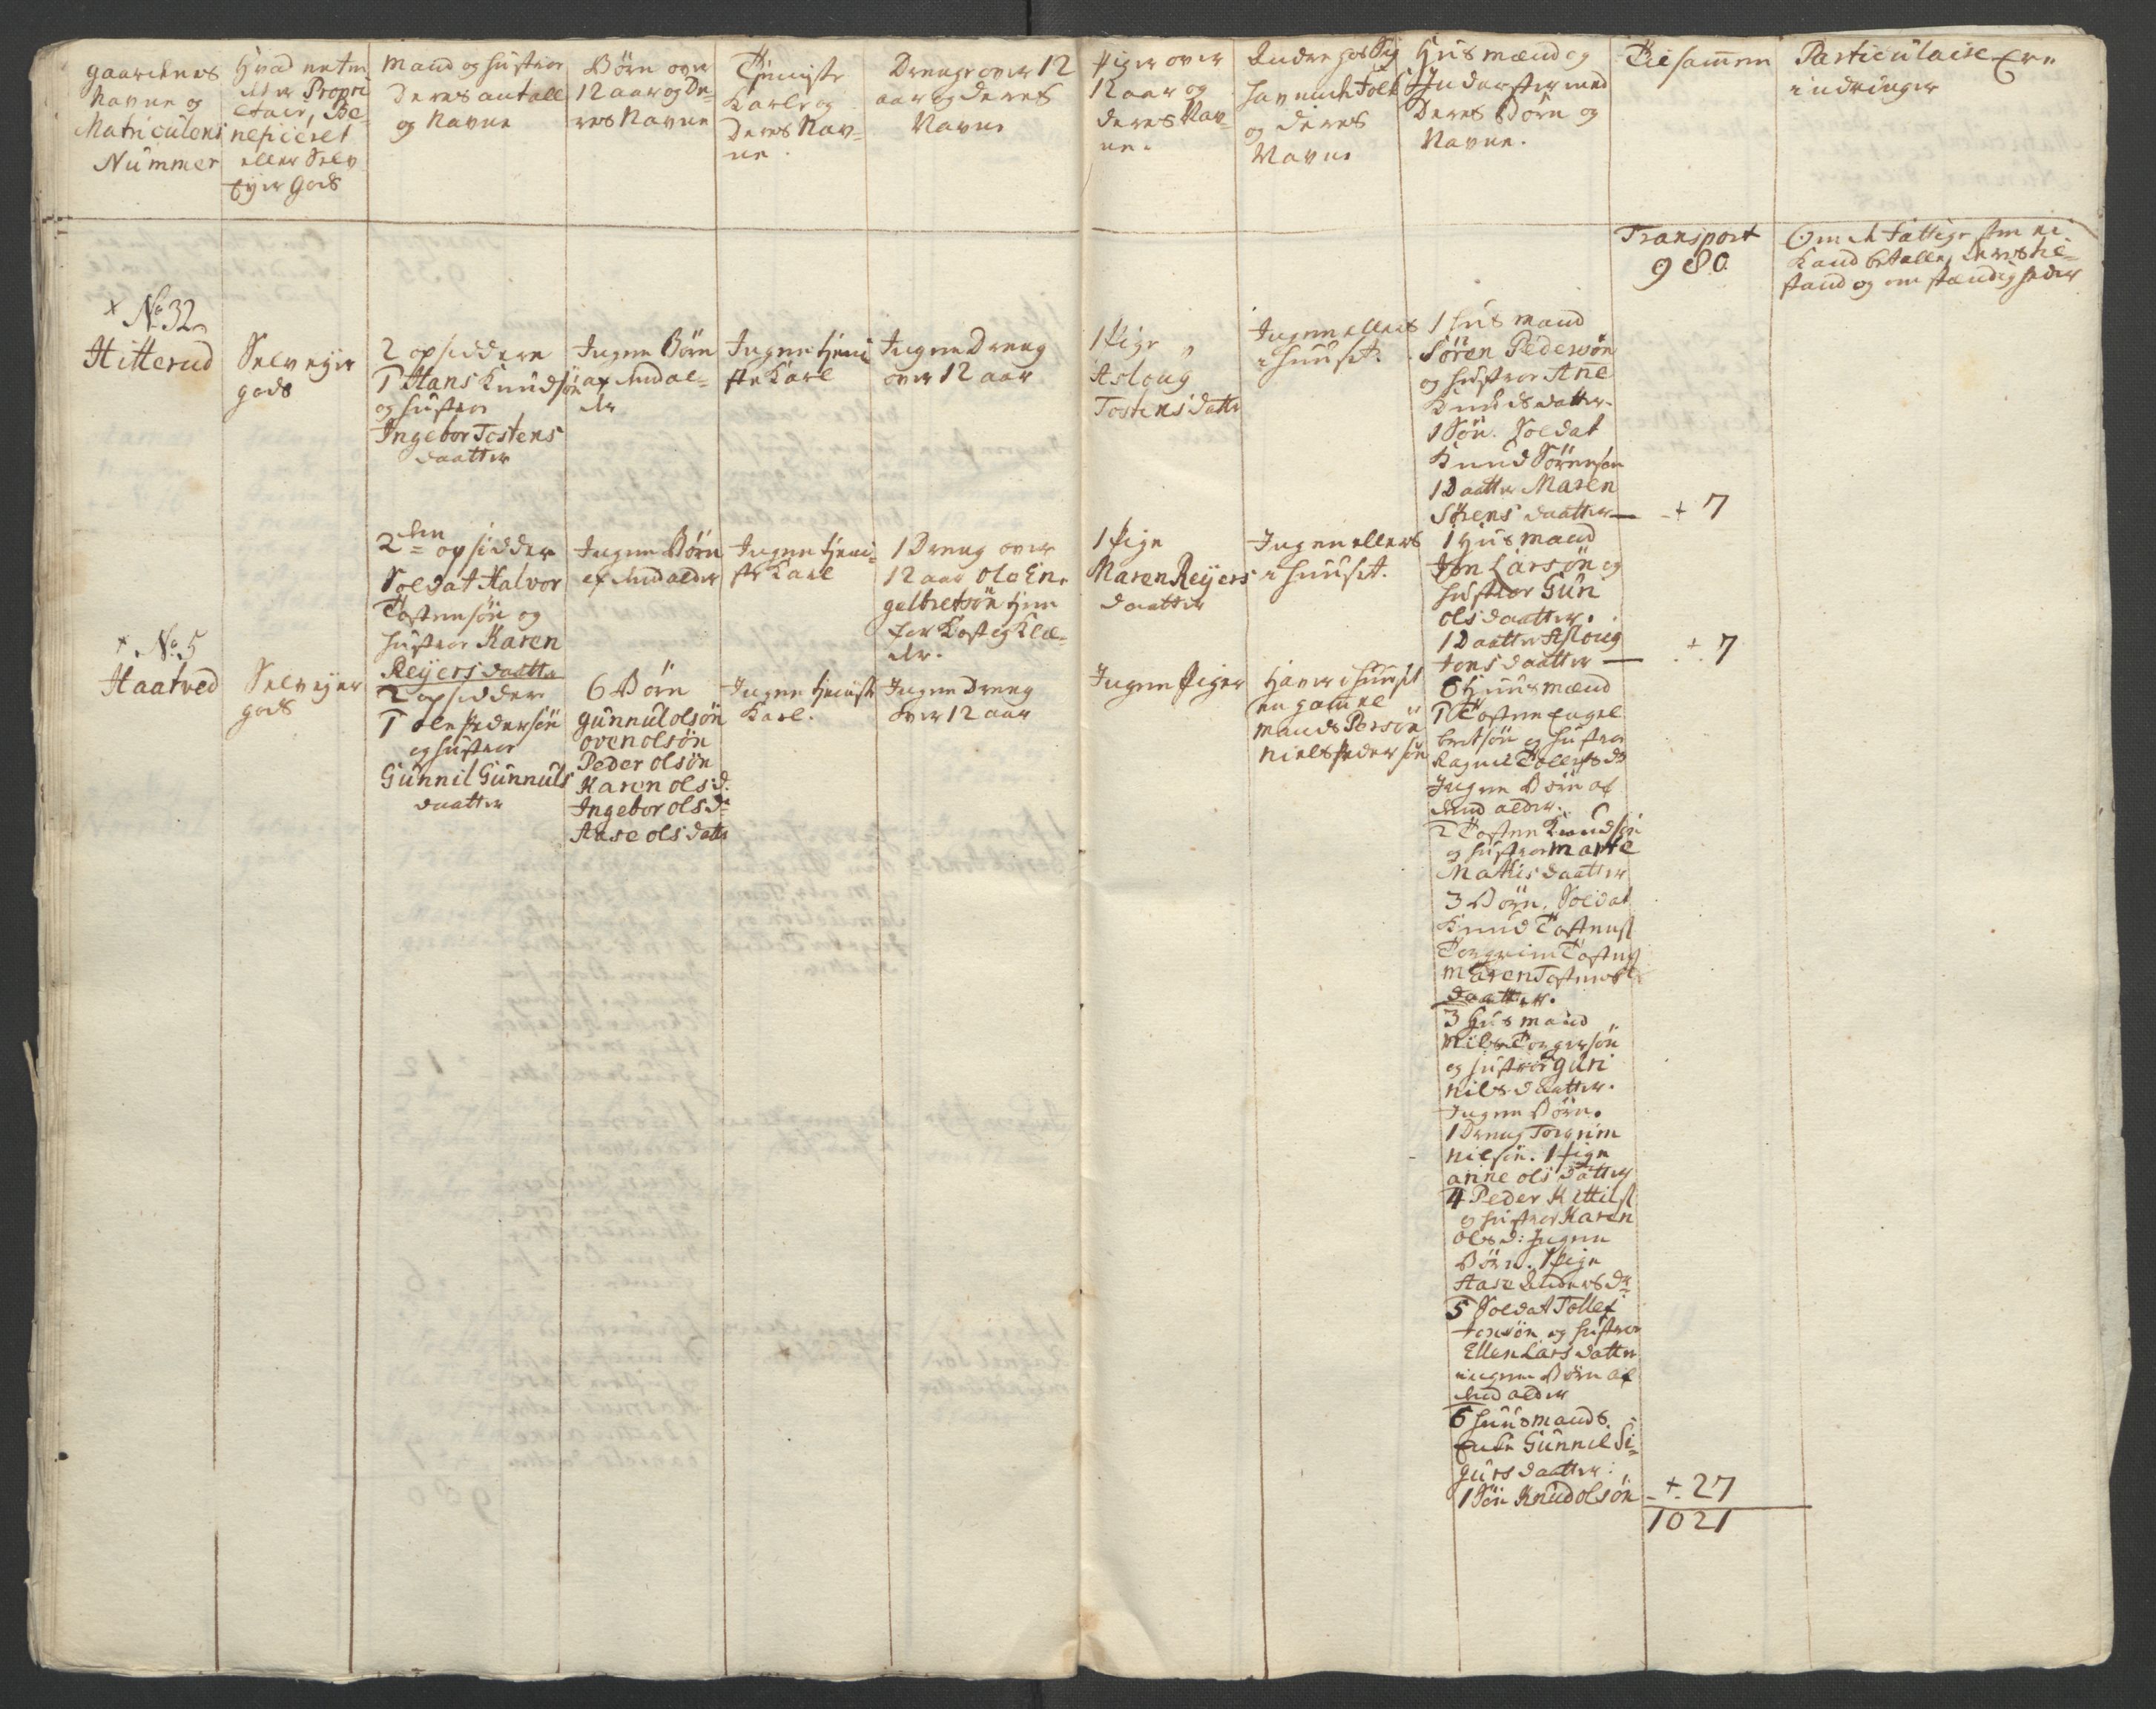 gaardenes
Navne og
Matriculens
Nummer
Hvad enten
det er Propri
etair, Be-
neficeret
eller Selv
Eyer Gods
Mand og Hustroe
Deres antall
og Navne
Börn over
12 aar og De-
res Navne
Tieniste
Karle og
Deres Nav-
ne.
Drenge over 12
aar og deres
Navne
Piger over
12 aar og
deres Nav-
ne.
Andre hos Sig
havende Folk
og deres
Navne
Huusmænd og
Inderster med
Deres Börn og
Navne.
Tilsammen
Particulaire Er-
indringer
Transport
980
Om de fattige som ei
Kand betalle, deres til-
stand og omstændigheder
+ No 32
Hitterud
Selv eyer
gods
2 opsiddere
1 Hans Knudsön
og hustroe
Ingebor Tostens
daatter
Ingen Börn
af dend al-
der
Ingen tieni
ste Karl
Ingen Dreng
over 12 aar
1 Pige
Asloug
Tostens datter
Ingen ellers
i huuset.
1 huusmand
Sören Pedersön
og hustroe Ane
Knudsdatter
1 Sön. Soldat
Knud Sörensön
1 Daatter Maren
Sörens daatter — + 7
2den opsidder
Soldat Halvor
Tostensön og
hustroe Karen
Reyers daatter
Ingen Börn
af dend alder
Ingen tieni-
ste Karl
1 Dreng over
12 aar Ole En-
gelbretsön tien
for Kost og Klæ-
der.
1 Pige
Maren Reyers
daatter
Ingen ellers
i huuset.
1 Huusmand
Jon Larsön og
hustroe Gun
olsdaatter.
1 Daatter Asloug
Jonsdaatter — + 7
+ No 5
Haatved
Selv eyer
gods
2 opsidder
1 Ole Pedersön
og hustroe
Gunnil Gunnuls
daatter
6 Börn
Gunnul olsön
oven olsön
Peder olsön
Karen ols d.
Ingebor ols dr
Aase ols datter
Ingen tieniste
Karl.
Ingen Dreng
over 12 aar
Ingen Piger
Haver i huuset
en gammel
mands Persön
Niels Pedersön
6 Huusmænd
1 Tosten Engel
bretsön og hustroe
Ragnil Tollefs dr
Ingen Börn af
dend alder.
2 Tosten Knudsön
og hustroe Marte
Mathis daatter
3 Börn, Soldat
Knud Tostens
Torgrim Tostens
Maren Tostens
daatter.
3 Huusmand
Nils Torgersön
og hustroe Guri
Nils daatter.
Ingen Börn.
1 Dreng Torgrim
Nilsön. 1 Pige
anne ols datter
4 Peder Kittils
og hustroe Karen
Ols d: Ingen
Börn. 1 Pige
Aase Anders dr
5 Soldat Tollef
Jonsön og hustroe
Ellen Lars datter
ingen Börn af
dend alder
6 huusmands
Enke Gunnil Si-
gurs daatter:
1 Sön Knud olsön + 27
1021